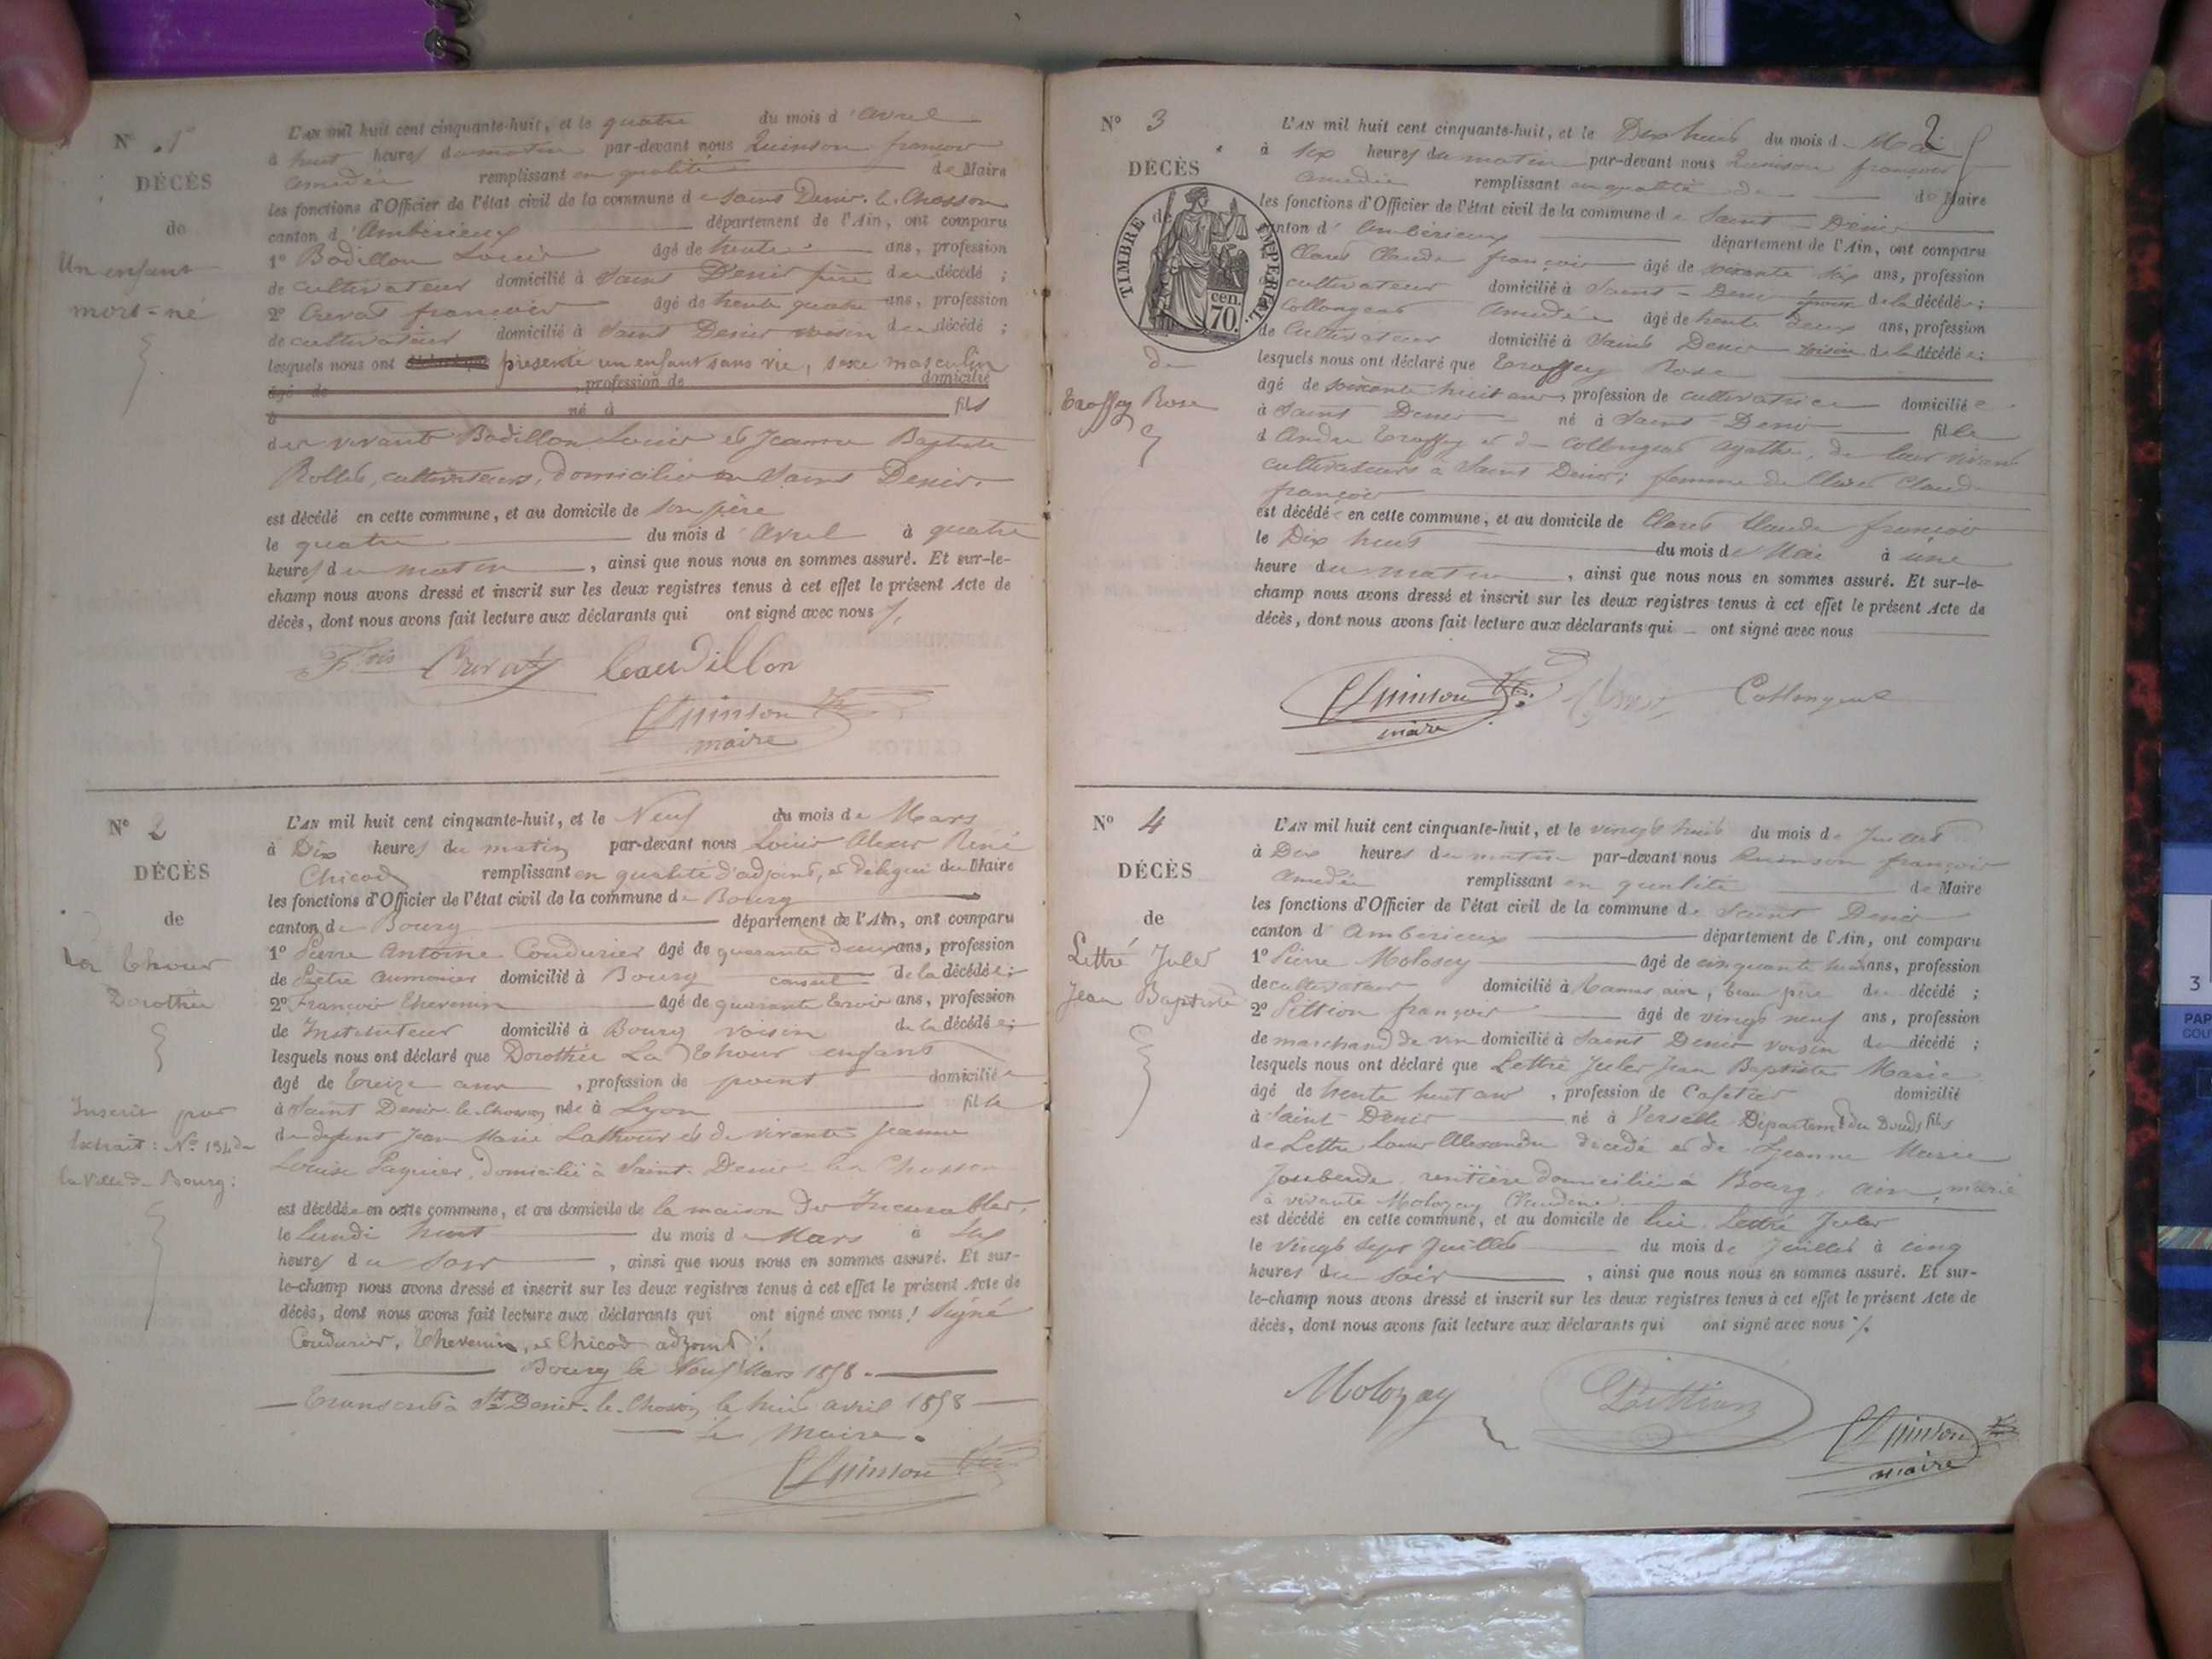 N° 1
DÉCÈS
de
Un enfant
mort-né
L'AN mil huit cent cinquante-huit, et le quatre du mois d'avril
à huit heures du matin par-devant nous Quinson françois
amédée remplissant en qualité de Maire
les fonctions d'Officier de l'état civil de la commune de Saint Denis-le-Chosson
canton d'Ambérieux département de l'Ain, ont comparu
1° Bodillon Louis âgé de trente ans, profession
de cultivateur domicilié à Saint Denis père du décédé ;
2° Crevat françois âgé de trente quatre ans, profession
de cultivateur domicilié à Saint Denis voisin du décédé ;
lesquels nous ont présenté un enfant sans vie, sexe masculin
âgé de , profession de domicilié
à né à fils
des vivants Bodillon Louis et Jeanne Baptiste
Rollet, cultivateurs, domiciliés à Saint Denis.
est décédé en cette commune, et au domicile de son père
le quatre du mois d'avril à quatre
heures du matin , ainsi que nous nous en sommes assuré. Et sur-le-
champ nous avons dressé et inscrit sur les deux registres tenus à cet effet le présent Acte de
décès, dont nous avons fait lecture aux déclarants qui ont signé avec nous
Fçois Crevat Beaudillon
Quinson
maire
N° 2
DÉCÈS
de
La Thour
Dorothée
Inscrit par
Extrait : N° 134 de
la Ville de Bourg :
L'AN mil huit cent cinquante-huit, et le Neuf du mois de Mars
à Dix heures du matin par-devant nous Louis Alexis René
Chicod remplissant en qualité d'adjoint, et délégué du Maire
les fonctions d'Officier de l'état civil de la commune de Bourg
canton de Bourg département de l'Ain, ont comparu
1° Pierre Antoine Coudurier âgé de quarante deux ans, profession
de Prêtre aumonier domicilié à Bourg de la décédée ;
2° François Thevenin âgé de quarante trois ans, profession
de Instituteur domicilié à Bourg voisin de la décédée ;
lesquels nous ont déclaré que Dorothée La Thour enfant
âgé de treize ans , profession de point domicilié
à Saint Denis-le-Chosson née à Lyon fille
de défunt Jean Marie Lathour et de vivante Jeanne
Louise Paquier, domicilié à Saint-Denis-le-Chosson
est décédée en cette commune, et au domicile de la maison des Incurables,
le Lundi huit du mois de Mars à six
heures du soir , ainsi que nous nous en sommes assuré. Et sur-
le-champ nous avons dressé et inscrit sur les deux registres tenus à cet effet le présent Acte de
décès, dont nous avons fait lecture aux déclarants qui ont signé avec nous ! Signé
Coudurier, Thevenin, et Chicod adjoint
Bourg le Neuf Mars 1858.
Transcrit à St Denis-le-Chosson le huit avril 1858
Le Maire.
Quinson
2
N° 3
DÉCÈS
de
TIMBRE IMPERIAL
70 cen.
de
Troffey Rose
L'AN mil huit cent cinquante-huit, et le Dix huit du mois de Mai
à six heures du matin par-devant nous Quinson françois
amédée remplissant en qualité de de Maire
les fonctions d'Officier de l'état civil de la commune de Saint-Denis
canton d'Ambérieux département de l'Ain, ont comparu
Claude françois âgé de soixante six ans, profession
cultivateur domicilié à Saint-Denis époux de la décédée ;
Collongeat Amédée âgé de trente deux ans, profession
de Cultivateur domicilié à Saint Denis voisin de la décédée ;
lesquels nous ont déclaré que Troffey Rose
âgé de soixante huit ans, profession de cultivatrice domiciliée
à Saint Denis né à Saint Denis fille
d'André Troffey et de Collongeat Agathe, de leur vivant
cultivateurs à Saint Denis ; femme de Claude
françois
est décédée en cette commune, et au domicile de Claude françois
le Dix huit du mois de Mai à une
heure du matin , ainsi que nous nous en sommes assuré. Et sur-le-
champ nous avons dressé et inscrit sur les deux registres tenus à cet effet le présent Acte de
décès, dont nous avons fait lecture aux déclarants qui ont signé avec nous
Quinson
maire
N° 4
DÉCÈS
de
Lettré Jules
Jean Baptiste
L'AN mil huit cent cinquante-huit, et le vingt huit du mois de Juillet
à Dix heures du matin par-devant nous Quinson françois
amédée remplissant en qualité de Maire
les fonctions d'Officier de l'état civil de la commune de Saint Denis
canton d'Amberieux département de l'Ain, ont comparu
1° Pierre Molozey âgé de cinquante ans, profession
de cultivateur domicilié à ain, beau père du décédé ;
2° Pittion françois âgé de vingt neuf ans, profession
de marchand de vin domicilié à Saint Denis voisin du décédé ;
lesquels nous ont déclaré que Lettré Jules Jean Baptiste Marie
âgé de trente huit ans , profession de Cafetier domicilié
à Saint-Denis né à Verselle Départemt du Doubs fils
de Lettré Louis Alexandre décédé et de Jeanne Marie
rentière domiciliée à Bourg, ain, marié
à vivante Molozay Claudine
est décédé en cette commune, et au domicile de lui Lettré Jules
le vingt sept Juillet du mois de Juillet à cinq
heures du soir , ainsi que nous nous en sommes assuré. Et sur-
le-champ nous avons dressé et inscrit sur les deux registres tenus à cet effet le présent Acte de
décès, dont nous avons fait lecture aux déclarants qui ont signé avec nous
Molozay Pittion Quinson
maire
3
PAP
COU